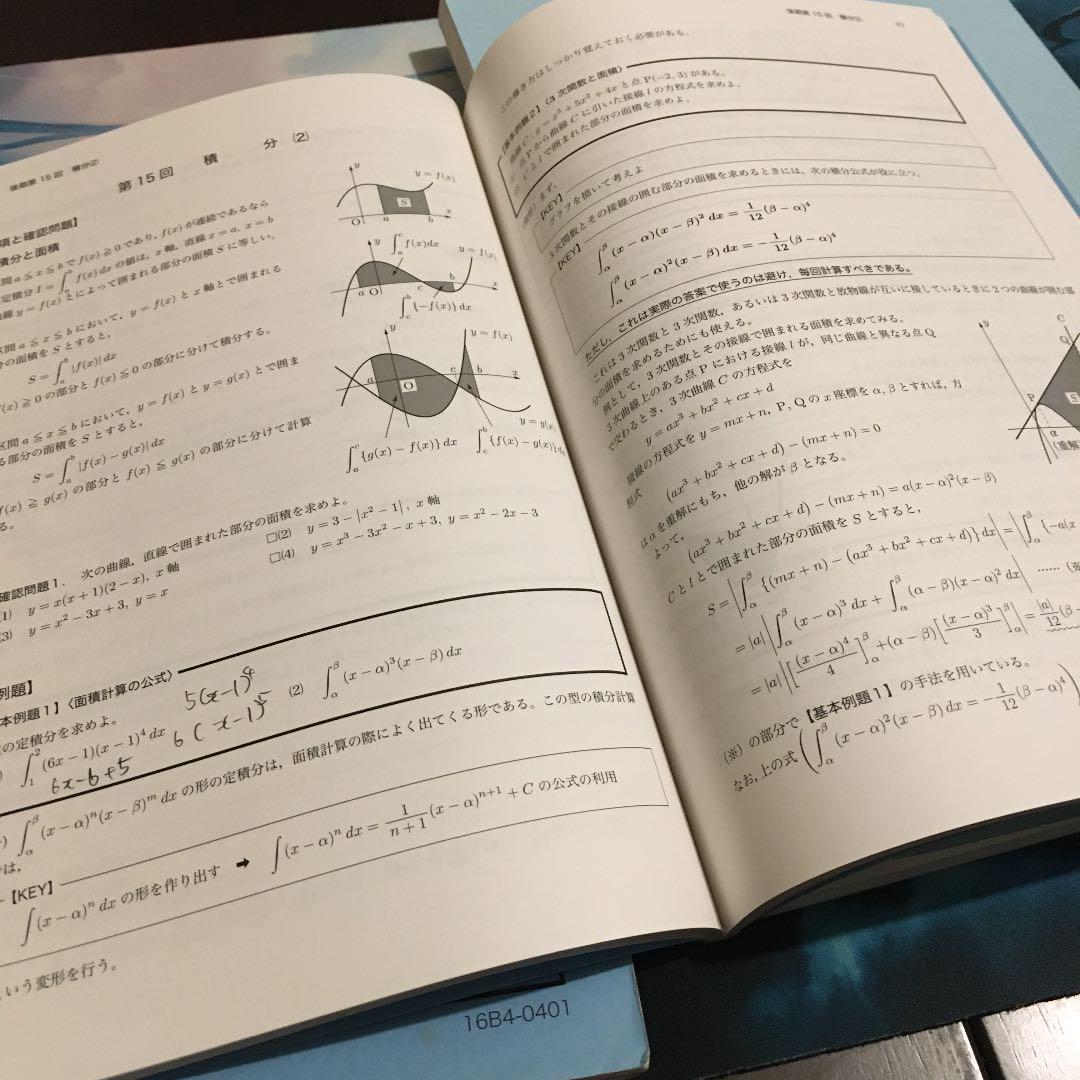 後期第15回 積分②
第15回 積 分 (2)
項と確認問題】
積分と面積
間 a≦x≦b で f(x)≧0 であり, f(x) が連続であるなら
定積分 I=∫_a^b f(x) dx の値は, x 軸, 直線 x=a, x=b
曲線 y=f(x) とによって囲まれる部分の面積 S に等しい.
区間 a≦x≦b において, y=f(x) と x 軸とで囲まれる
分の面積を S とすると,
S=∫_a^b |f(x)| dx
f(x)≧0 の部分と f(x)≦0 の部分に分けて積分する.
区間 a≦x≦b において, y=f(x) と y=g(x) とで囲ま
る部分の面積を S とすると,
S=∫_a^b |f(x)-g(x)| dx
f(x)≧g(x) の部分と f(x)≦g(x) の部分に分けて計算
る.
y y=f(x)
S
O a b x
y ∫_a^c f(x)dx y=f(x)
a O c b x
∫_c^b {-f(x)} dx
y y=f(x)
a O c b x
y=g(x)
∫_a^c {g(x)-f(x)} dx ∫_c^b {f(x)-g(x)} dx
確認問題1. 次の曲線, 直線で囲まれた部分の面積を求めよ.
(1) y=x(x+1)(2-x), x 軸
□(2) y=3-|x²-1|, x 軸
(3) y=x²-3x+3, y=x
□(4) y=x³-3x²-x+3, y=x²-2x-3
例題】
本例題1】〈面積計算の公式〉
の定積分を求めよ.
∫_1^2 (6x-1)(x-1)^4 dx
(2) ∫_α^β (x-α)³(x-β) dx
5(x-1)^4
6(x-1)^5
6x-6+5
∫_α^β (x-α)^n(x-β)^m dx の形の定積分は, 面積計算の際によく出てくる形である. この型の積分計算
では,
【KEY】
∫(x-α)^n dx の形を作り出す ➡ ∫(x-α)^n dx = 1/(n+1) (x-α)^{n+1}+C の公式の利用
いう変形を行う.
16B4-0401
後期第15回 積分②
この描き方はしっかり覚えておく必要がある.
【基本例題2】〈3次関数と面積〉
曲線 C: y=x³+5x²+4x と点 P(-2, 3) がある.
点 P から曲線 C に引いた接線 l の方程式を求めよ.
C と l で囲まれた部分の面積を求めよ.
まず,
【KEY】
グラフを描いて考えよ
3次関数とその接線の囲む部分の面積を求めるときには, 次の積分公式が役に立つ.
【KEY】
∫_α^β (x-α)(x-β)² dx = 1/12 (β-α)^4
∫_α^β (x-α)²(x-β) dx = -1/12 (β-α)^4
ただし, これは実際の答案で使うのは避け, 毎回計算すべきである。
これは3次関数と3次関数, あるいは3次関数と放物線が互いに接しているときに2つの曲線が囲む部
分の面積を求めるためにも使える.
例として, 3次関数とその接線で囲まれる面積を求めてみる.
3次曲線上のある点 P における接線 l が, 同じ曲線と異なる点 Q
で交わるとき, 3次曲線 C の方程式を
y=ax³+bx²+cx+d
接線の方程式を y=mx+n, P, Q の x 座標を α, β とすれば, 方
程式 (ax³+bx²+cx+d)-(mx+n)=0
は α を重解にもち, 他の解が β となる.
よって,
(ax³+bx²+cx+d)-(mx+n)=a(x-α)²(x-β)
C と l とで囲まれた部分の面積を S とすると,
S=|∫_α^β {(mx+n)-(ax³+bx²+cx+d)} dx|=|∫_α^β {-a(x
=|a| |∫_α^β (x-α)³ dx+∫_α^β (α-β)(x-α)² dx| ……(※
=|a| |[(x-α)^4/4]_α^β+(α-β)[(x-α)³/3]_α^β|=|a|/12 (β-
(※) の部分で【基本例題1】の手法を用いている.
なお, 上の式 (∫_α^β (x-α)²(x-β) dx=-1/12 (β-α)^4)
y
C
S
P
α
(重解